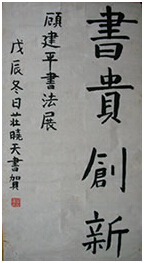 書貴創新
顧建平書法展
戊辰冬日莊曉天書賀